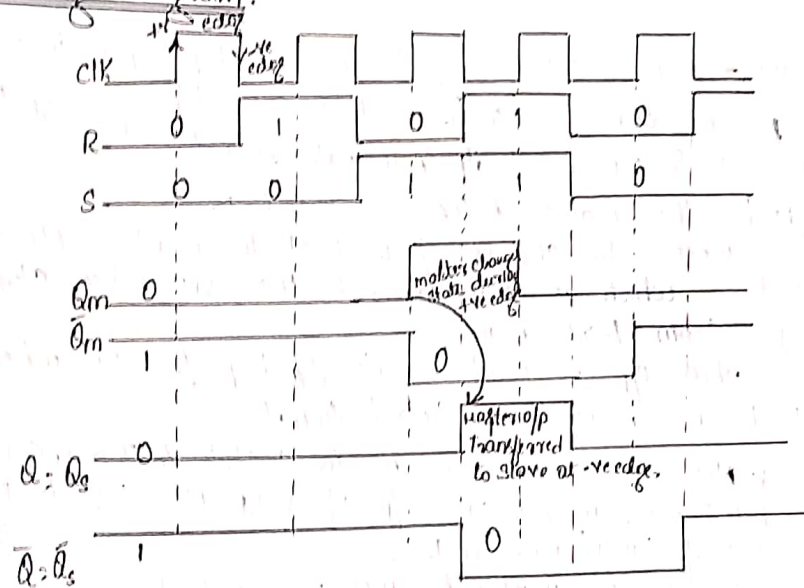 +ve edge
-ve
edge
Clk
R 0 1 0 1 0
S 0 0 1 1 0
Qm 0
master change
state during
+ve edge
Q̅m 1 0
Q = Qs 0
Master o/p
transferred
to slave at -ve edge.
Q̅ = Q̅s 1 0